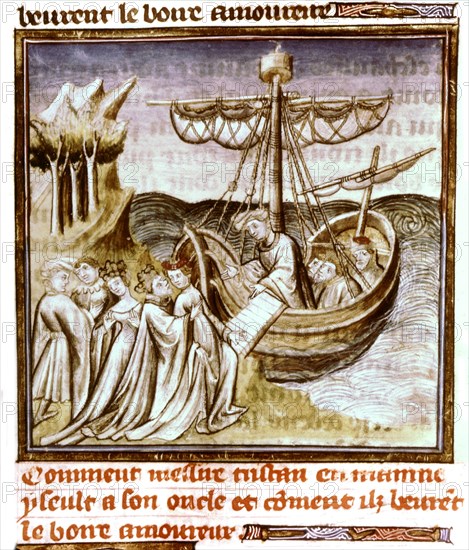 beurent le boire amoureux
Comment messire tristan en mainne
yseult a son oncle et cõment ilz beurẽt
le boire amoureux
PHOTO12